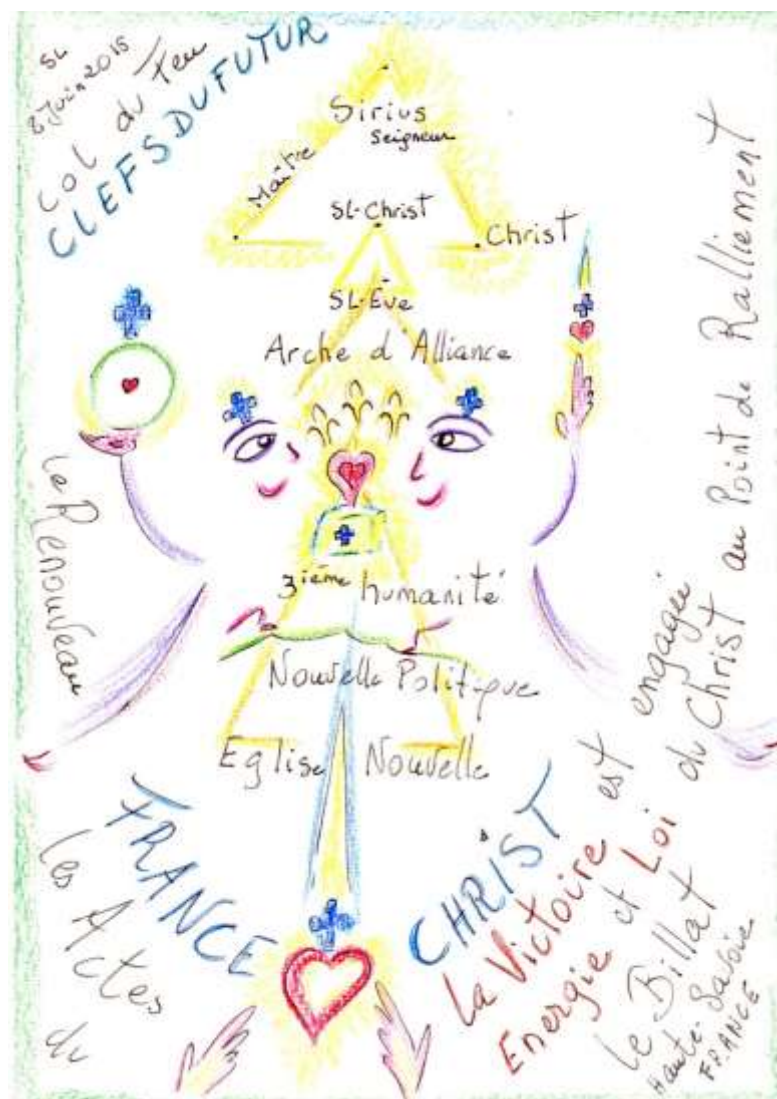 SL
8 Juin 2015
Col du Feu
CLEFSDUFUTUR
Sirius
Seigneur
Maître
SL-Christ
Christ
SL-Ève
Arche d Alliance
3ième humanité
Nouvelle Politique
Eglise Nouvelle
FRANCE
CHRIST
Les Actes
du
Renouveau
La Victoire est engagée
Energie et Loi du Christ au Point de Ralliement
Le Billat
Haute-Savoie
FRANCE